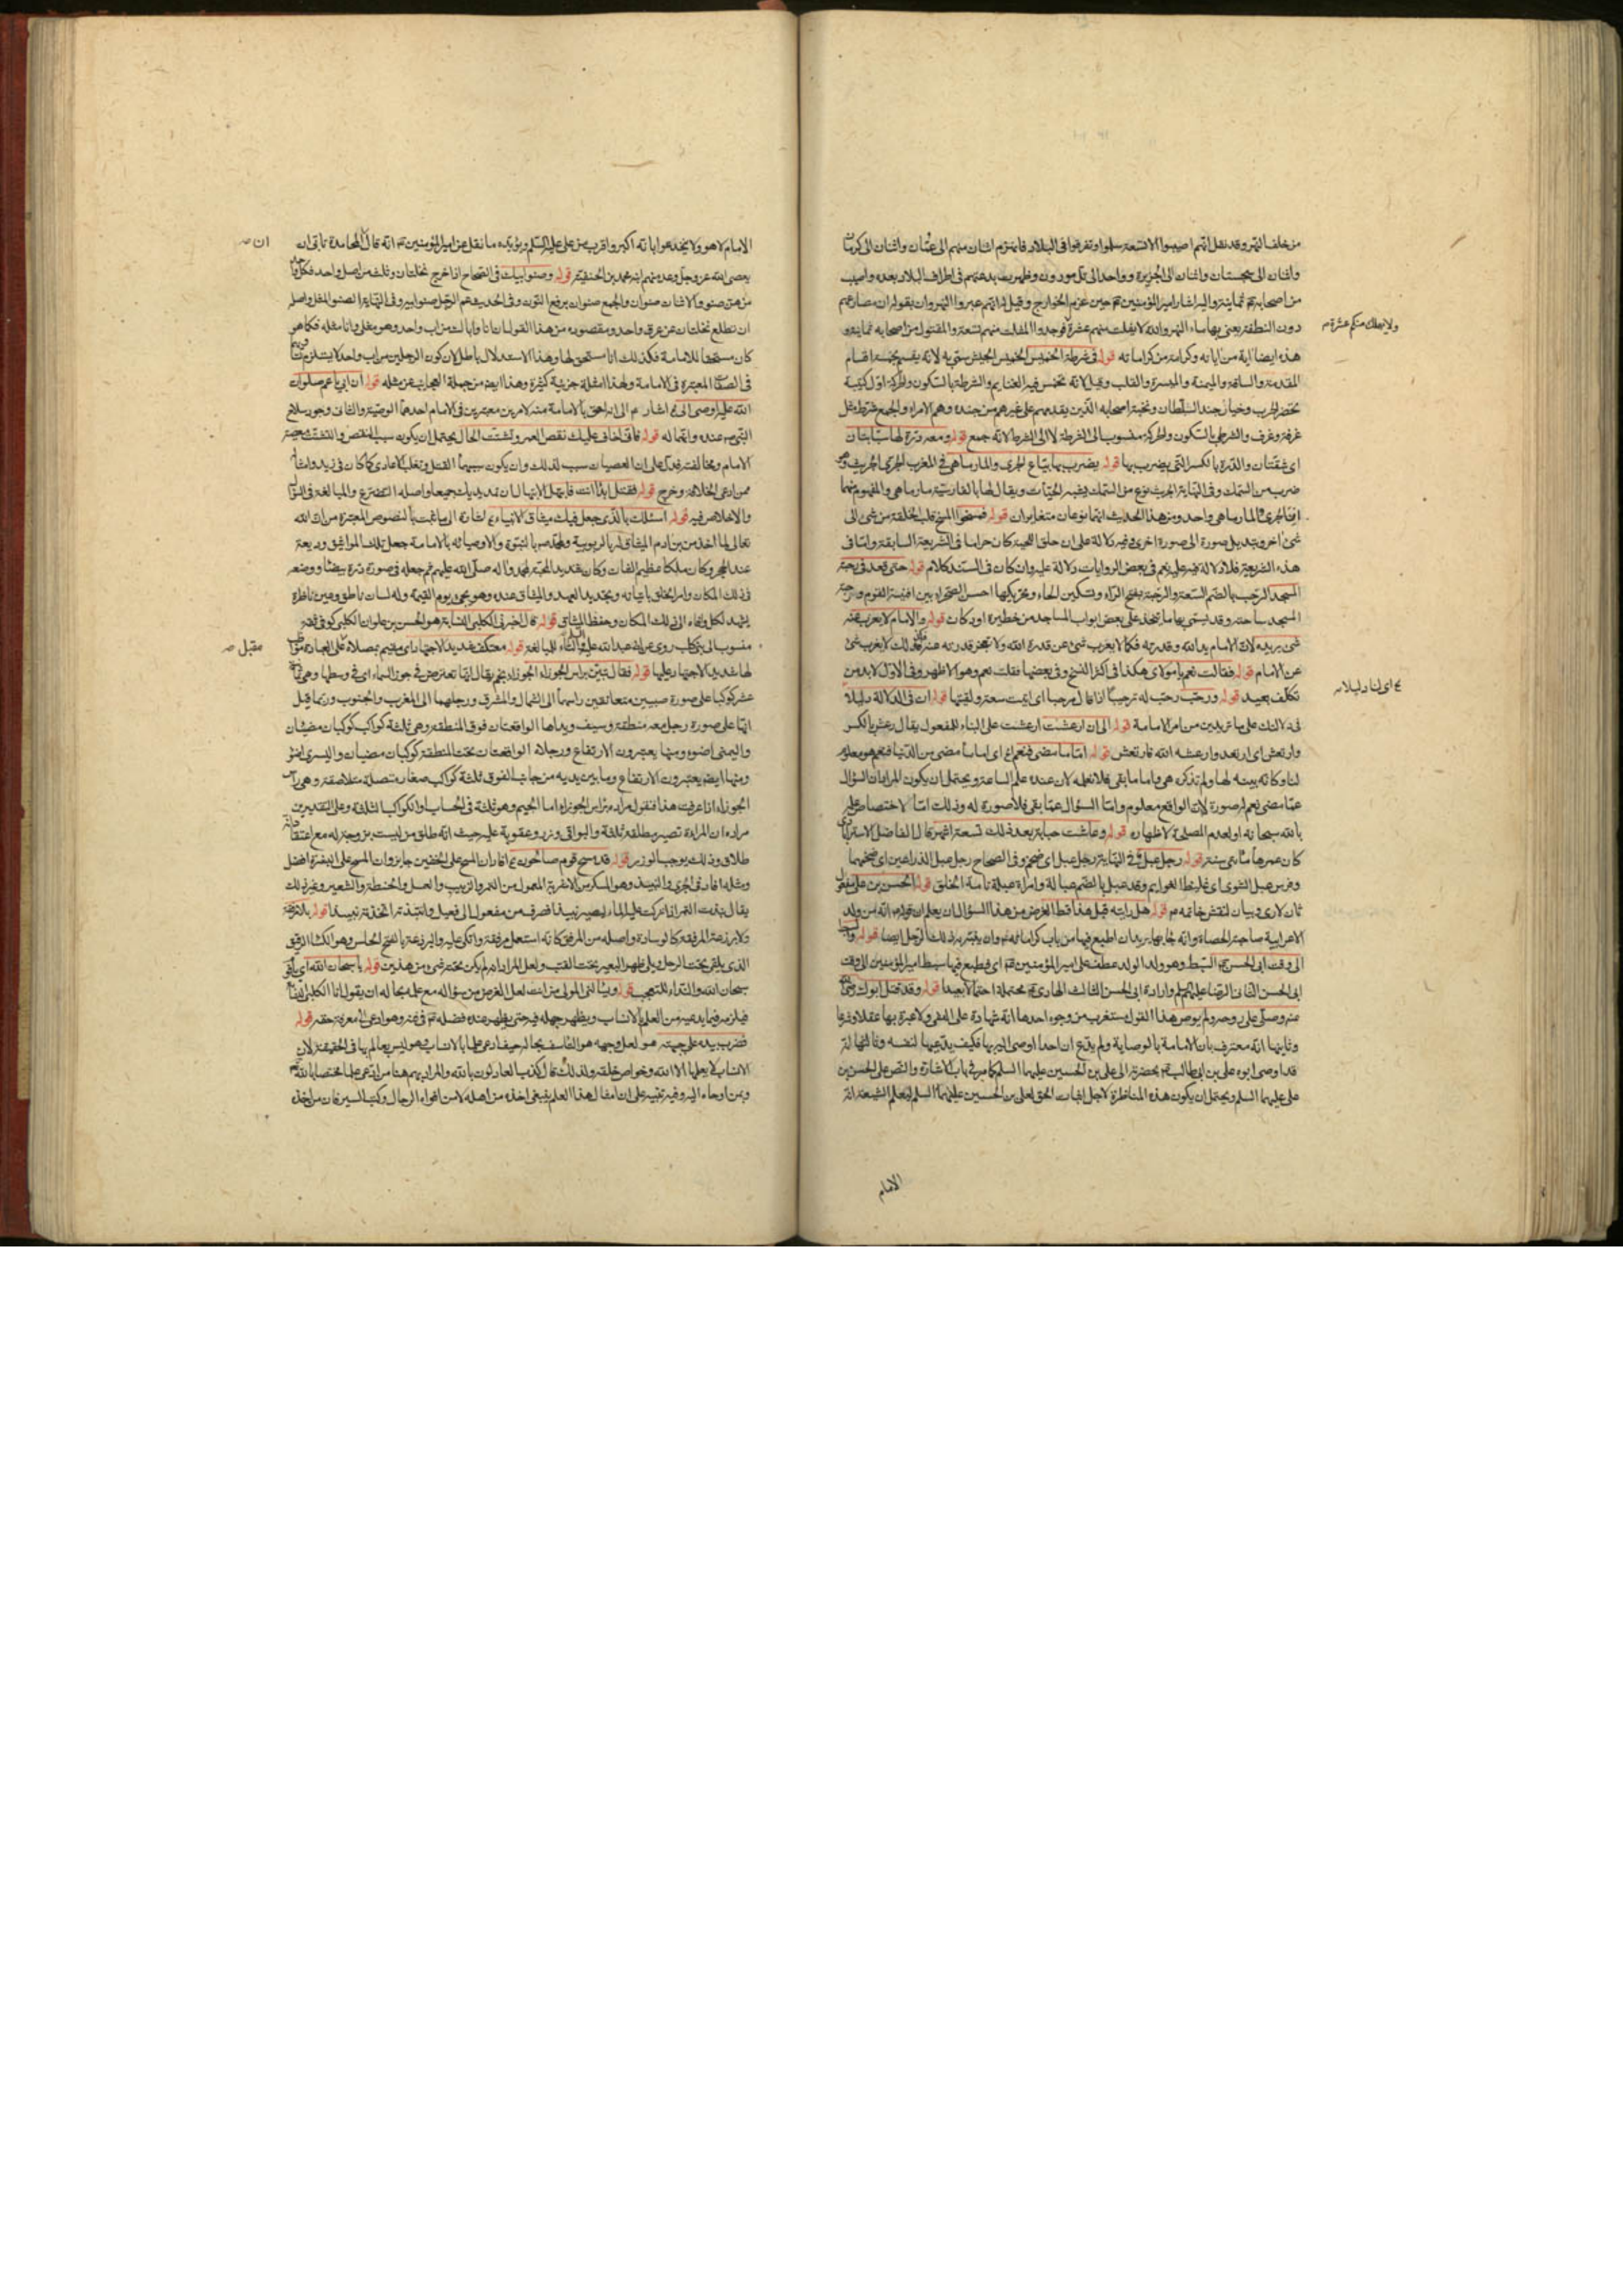 من خلف النهر وقد نقل انهم اصيبوا الا تسعة سلموا وتفرقوا فى البلاد فانهزم اثنان منهم الى عمّان واثنان الى كرمان
واثنان الى سجستان واثنان الى الجزيرة وواحد الى تل مورون وظهرت بدعتهم فى اطراف البلاد بعده واصيب
من اصحابه ثمانية واليه اشار امير المؤمنين حين عزم الخوارج وقيل له انهم عبروا النهروان بقوله ان مصارعهم
دون النطفة يعنى بها ماء النهر والله لا يفلت منهم عشرة فوجدوا المفلت منهم تسعة والمقتول من اصحابه ثمانية و
ولا يهلك منكم عشرة
هذه ايضا اية من اياته وكرامة من كراماته قوله فى شرطة الخميس الخميس الجيش سمى به لانه يقسم بخمسة اقسام
المقدمة والساقة والميمنة والميسرة والقلب وقيل لانه تخمس فيه الغنايم والشرطة بالسكون والحركة اول كتيبة
تحضر الحرب وخيار جند السلطان ونخبة اصحابه الذين يقدمهم على غيرهم من جنده وهم الامراء والجمع شرط مثل
غرفة وغرف والشرطى بالسكون والحركة منسوب الى الشرطة لا الى الشرط لانه جمع قوله ومعه درة لها سبابتان
اى شقتان والدرة بالكسر التى يضرب بها قوله يضرب بها بياع الجرى والمارماهى فى المغرب الجرى الجريث وهو
ضرب من السمك وفى النهاية الجريث نوع من السمك يشبه الحيات ويقال لها بالفارسية مارماهى والمفهوم منهما
ان الجرى والمارماهى واحد ومن هذا الحديث انهما نوعان متغايران قوله فمسخوا المسخ قلب الخلقة من شئ الى
شئ اخر وتبديل صورة الى صورة اخرى وفيه دلالة على ان حلق اللحية كان حراما فى الشريعة السابقة واما فى
هذه الشريعة فلا دلالة فيه عليه نعم فى بعض الروايات دلالة عليه وان كان فى السند كلام قوله حتى قعد فى رحبة
المسجد الرحب بالضم السعة والرحبة بفتح الراء وتسكين الحاء وتحريكها احسن الصحراء بين افنية القوم ورحبة
المسجد ساحته وقد يسمى بها ما يتخذ على بعض ابواب المساجد من حظيرة او دكان قوله والامام لا يعزب عنه
شئ يريده لان الامام يد الله وقدرته فكما لا يعزب شئ عن قدرة الله ولا تعجز قدرته عنه فكذلك لا يعزب شئ
عن الامام قوله فقالت نعم يا مولاى هكذا فى اكثر النسخ وفى بعضها فقلت نعم وهو الاظهر وفى الاول لا بد من
تكلف بعيد قوله ورحب رحب له ترحيبا اذا قال مرحبا اى اتيت سعة ولقيتها قوله ان فى الدلالة دليلا
اى لنا دليلا
فى ذلك على ما تريدين من امر الامامة قوله الى ان ارعشت ارعشت على البناء للمفعول يقال رعش بالكسر
وارتعش اى ارتعد وارعشه الله فارتعش قوله اما ما مضى فنعم اى اما ما مضى من الدنيا فنعم هو معلوم
لنا وكانه بينه لها ولم تذكره هى واما ما بقى فلا نعلمه لان عنده علم الساعة ويحتمل ان يكون المراد ان السؤال
عما مضى نعم له صورة لان الواقع معلوم واما السؤال عما بقى فلا صورة له وذلك اما لاختصاص علمه
بالله سبحانه او لعدم المصلحة لاظهاره قوله وعاشت حبابة بعد ذلك تسعة اشهر قال الفاضل الاسترابادى
كان عمرها مأتى سنة قوله رجل عبل فى النهاية رجل عبل اى ضخم وفى الصحاح رجل عبل الذراعين اى ضخمهما
وفرس عبل الشوى اى غليظ القوايم وقد عبل بالضم عبالة وامراة عبلة تامة الخلق قوله الحسن بن على
قوله هل رايته قبل هذا قط الغرض من هذا السؤال ان يعلم ان
الى وقت ابى الحسن السبط وهو ولد الولد عطف على امير المؤمنين اى فطبع فيها سبط امير المؤمنين الى وقت
ابى الحسن الثانى الرضا عليهم السلم وارادة ابى الحسن الثالث الهادى محتملة احتمالا بعيدا قوله وقد قتل ابوك رضى
عنه وصلى على روحه ولم يوص هذا القول مستغرب من وجوه احدها انه شهادة على النفى ولا عبرة بها عقلا وشرعا
وثانيها انه معترف بان الامامة بالوصاية ولم يدع ان احدا اوصى اليه بها فكيف يدعيها لنفسه وثالثها انه
قد اوصى ابوه على بن ابى طالب بحضرته الى على بن الحسين عليهما السلم كما مر فى باب الاشارة والنص على الحسن بن
على عليهما السلم ويحتمل ان يكون هذه المناظرة لاجل اثبات الحق لعلى بن الحسين عليهما السلم ليعلم الشيعة انه
الامام
الامام لا هو ولا يخدعوا بانه اكبر واقرب من على عليه السلم ويؤيده ما نقل عن امير المؤمنين انه قال المحامدة تابى ان
ان
يعصى الله عز وجل وعد منهم ابنه محمد بن الحنفية قوله وصنو ابيك فى الصحاح اذا خرج نخلتان وثلث من اصل واحد فكل واحدة
منهن صنو والاثنان صنوان والجمع صنوان برفع النون وفى الحديث عم الرجل صنو ابيه وفى النهاية الصنو المثل واصله
ان تطلع نخلتان عن عرق واحد ومقصوده من هذا القول ان انا واباك من اب واحد وهو مثلى وانا مثله فكما هو
كان مستحقا للامامة فكذلك انا مستحق لها وهذا الاستدلال باطل لان كون الرجلين من اب واحد لا يستلزم
فى الصفات المعتبرة فى الامامة ولهذا امثلة جزئية كثيرة وهذا ايضا من جملة العجايب عن مثله قوله ان ابى يا عم صلوات
الله عليه اوصى الى اشار الى انه احق بالامامة منه لامرين معتبرين فى الامام احدهما الوصية والثانى وجود سلاح
النبى عنده واثباته له قوله فانى اخاف عليك نقص العمر وتشتت الحال يحتمل ان يكون سبب النقص والتشتت
الامام ومخالفته فدل على ان العصيان سبب لذلك وان يكون سببهما القتل وتغلب الاعادى كما كان فى زيد وامثاله
ممن ادعى الخلافة وخرج قوله فابتهل الابتهال ان تمد يديك جميعا واصله التضرع والمبالغة فى السؤال
والاخلاص فيه قوله اسئلك بالذى جعل فيك ميثاق الانبياء اشارة الى ما ثبت بالنصوص المعتبرة من ان الله
تعالى لما اخذ من بنى ادم الميثاق له بالربوبية ولمحمد بالنبوة والاوصيائه بالامامة جعل تلك المواثيق وديعة
عند الحجر وكان ملكا عظيم الشان وكان شديد المحبة لمحمد واله صلى الله عليهم ثم جعله فى صورة درة بيضاء ووضعه
فى ذلك المكان وامر الخلق باتيانه وتجديد العهد والميثاق عنده وهو يجئ يوم القيمة وله لسان ناطق وعين ناظرة
يشهد لكل وافاه الى ذلك المكان وحفظ الميثاق قوله قال اخبرنى الكلبى النسابة هو الحسن بن علوان الكلبى كوفى ثقة
منسوب الى بنى كلب روى عن ابى عبد الله عليه والتاء للمبالغة قوله معتكف شديد الاجتهاد اى مقيم بمصلاه على العبادة
مقبل
لها شديد الاجتهاد عليها قوله فقال تبين براس الجوزاء الجوزاء نجم يقال انها تعترض فى جوز السماء اى فى وسطها وهى
عشر كوكبا على صورة صبيين متعانقين راسهما الى الشمال والمشرق ورجلهما الى المغرب والجنوب وربما قيل
انها على صورة رجل معه منطقة وسيف ويداها الواقعتان فوق المنطقة وهى ثلثة كواكب كوكبان مضيئان
واليمنى اضوء ومنها يعتبرون الارتفاع ورجلاه الواقعتان تحت المنطقة كوكبان مضيئان واليسرى اضوء
ومنها ايضا يعتبرون الارتفاع وما بين يديه من جانب الفوق ثلثة كواكب صغار متصلة متلاصقة وهى راس
الجوزاء اذا عرفت هذا فنقول مراده براس الجوزاء اما الجيم وهو ثلثة فى الحساب او الكواكب الثلثة وعلى التقديرين
مراده ان المراة تصير مطلقة ثلثة والبواقى وزر وعقوبة عليه حيث انه طلق من ليست بزوجة له مع اعتقاد انه
طلاق وذلك يوجب الوزر قوله قد مسح قوم صالحون افاد ان المسح على الخفين جايز وان المسح على البشرة افضل
ومثله افاد فى الجرى والنبيذ وهو المسكر من الاشربة المعمول من التمر والزبيب والعسل والحنطة والشعير وغير ذلك
يقال نبذت التمر اذا تركت عليه الماء ليصير نبيذا فصرف من مفعول الى فعيل وانتبذته اتخذته نبيذا قوله
كالوسادة واصله من المرفق كانه استعمل مرفقة واتكى عليه والبرذعة بالفتح الحلس وهو الكساء الرقيق
الذى يلقى تحت الرحل ويلى ظهر البعير تحت القتب ولعل المراد انه لم يكن تحته شئ من هذين قوله يا سبحان الله اى
سبحان الله والنداء للتعجب قوله المولى من انت لعل الغرض من سؤاله مع علمه بحاله ان يقول انا الكلبى النسابة
فيلزمه فيما يدعيه من العلم بالانساب ويظهر جهله فيه حتى يظهر عنده فضله وهو ادعى الى معرفة حقه قوله
فضرب بيده على جبهته لعل وجهه هو التاسف بحاله حيث ادعى علما بالانساب وهو ليس بعالم بها فى الحقيقة لان
الانساب لا يعلمها الا الله وخواص خلقه ولذلك قال كذب العادلون بالله والمراد بهم هنا من ادعى علما مختصا بالله
وبمن اوحاه اليه وفيه تنبيه على ان امثال هذا العلم ينبغى اخذه من اهله لا من افواه الرجال وكتب السير فان من اخذه